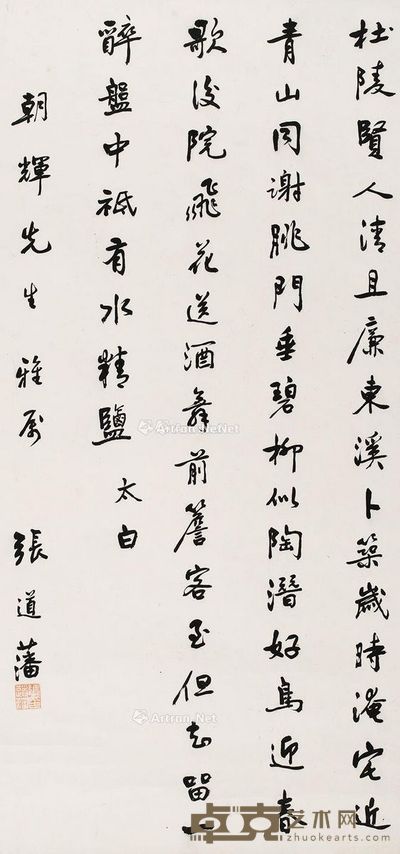 杜陵賢人清且廉東溪卜築歲時淹宅近
青山同謝朓門垂碧柳似陶潛好鳥迎春
歌後院飛花送酒舞前簷客至但知留一
醉盤中祗有水精鹽
太白
朝輝先生 雅屬 張道藩
卓克艺术网
zhuokearts.com